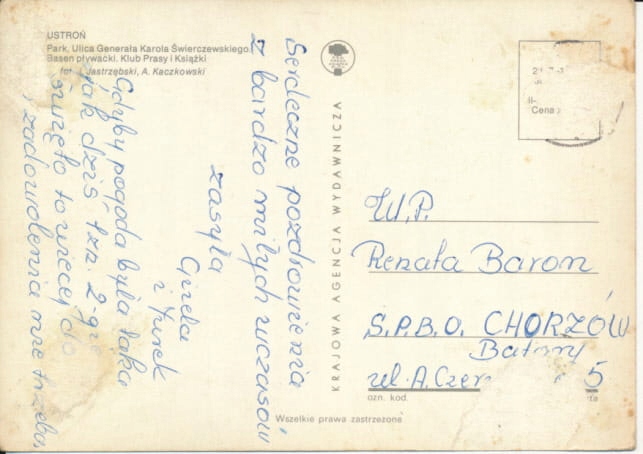 USTROŃ
Park, Ulica Generała Karola Świerczewskiego.
Basen pływacki. Klub Prasy i Książki
fot. Jastrzębski, A. Kaczkowski
Serdeczne pozdrowienia
z bardzo miłych wczasów
zasyła
Gizela
i Jurek
Gdyby pogoda była taka
jak dziś tzn. 2-go
święto to więcej do
zadowolenia nie trzeba.
KRAJOWA AGENCJA WYDAWNICZA
Cena
W.P.
Renata Baron
S.P.B.O. CHORZÓW
Batory
ul. A. 5
ozn. kod.
Wszelkie prawa zastrzeżone